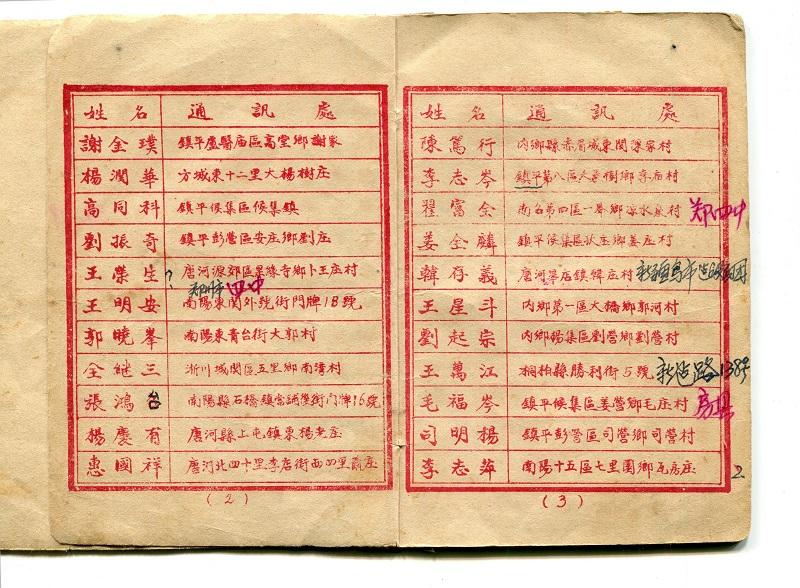 姓名 通訊處
謝金璞 鎮平盧醫庙區高堂鄉謝家
楊潤華 方城東十二里大楊樹庄
高同科 鎮平侯集區侯集鎮
劉振奇 鎮平彭營區安庄鄉劉庄
王榮生 唐河源郊區 寺鄉卜王庄村
?
鄭州市四中
王明安 南陽東関外號街門牌18號
郭曉峯 南陽東青台街大郭村
全継三 淅川城関區五里鄉南灣村
張鴻 南陽縣石橋鎮 街門牌16號
楊慶有 唐河縣上屯鎮東楊老庄
惠國祥 唐河北四十里李店街西四里 庄
(2)
姓名 通訊處
陳篤行 内鄉縣赤眉城東関陳家村
李志岑 鎮平第八區大 樹鄉李 村
翟富全 南召第四區一 鄉凉水泉村 郑四中
姜全麟 鎮平侯集區 庄鄉姜庄村
韓存義 唐河畢店鎮韓庄村 新疆烏市
王星斗 内鄉第一區大橋鄉郭河村
劉起宗 内鄉楊集區劉營鄉劉營村
王萬江 桐柏縣勝利街5號 路138号
毛福岑 鎮平侯集區姜營鄉毛庄村
司明楊 鎮平彭營區司營鄉司營村
李志萍 南陽十五區七里園鄉瓦房庄 2
(3)